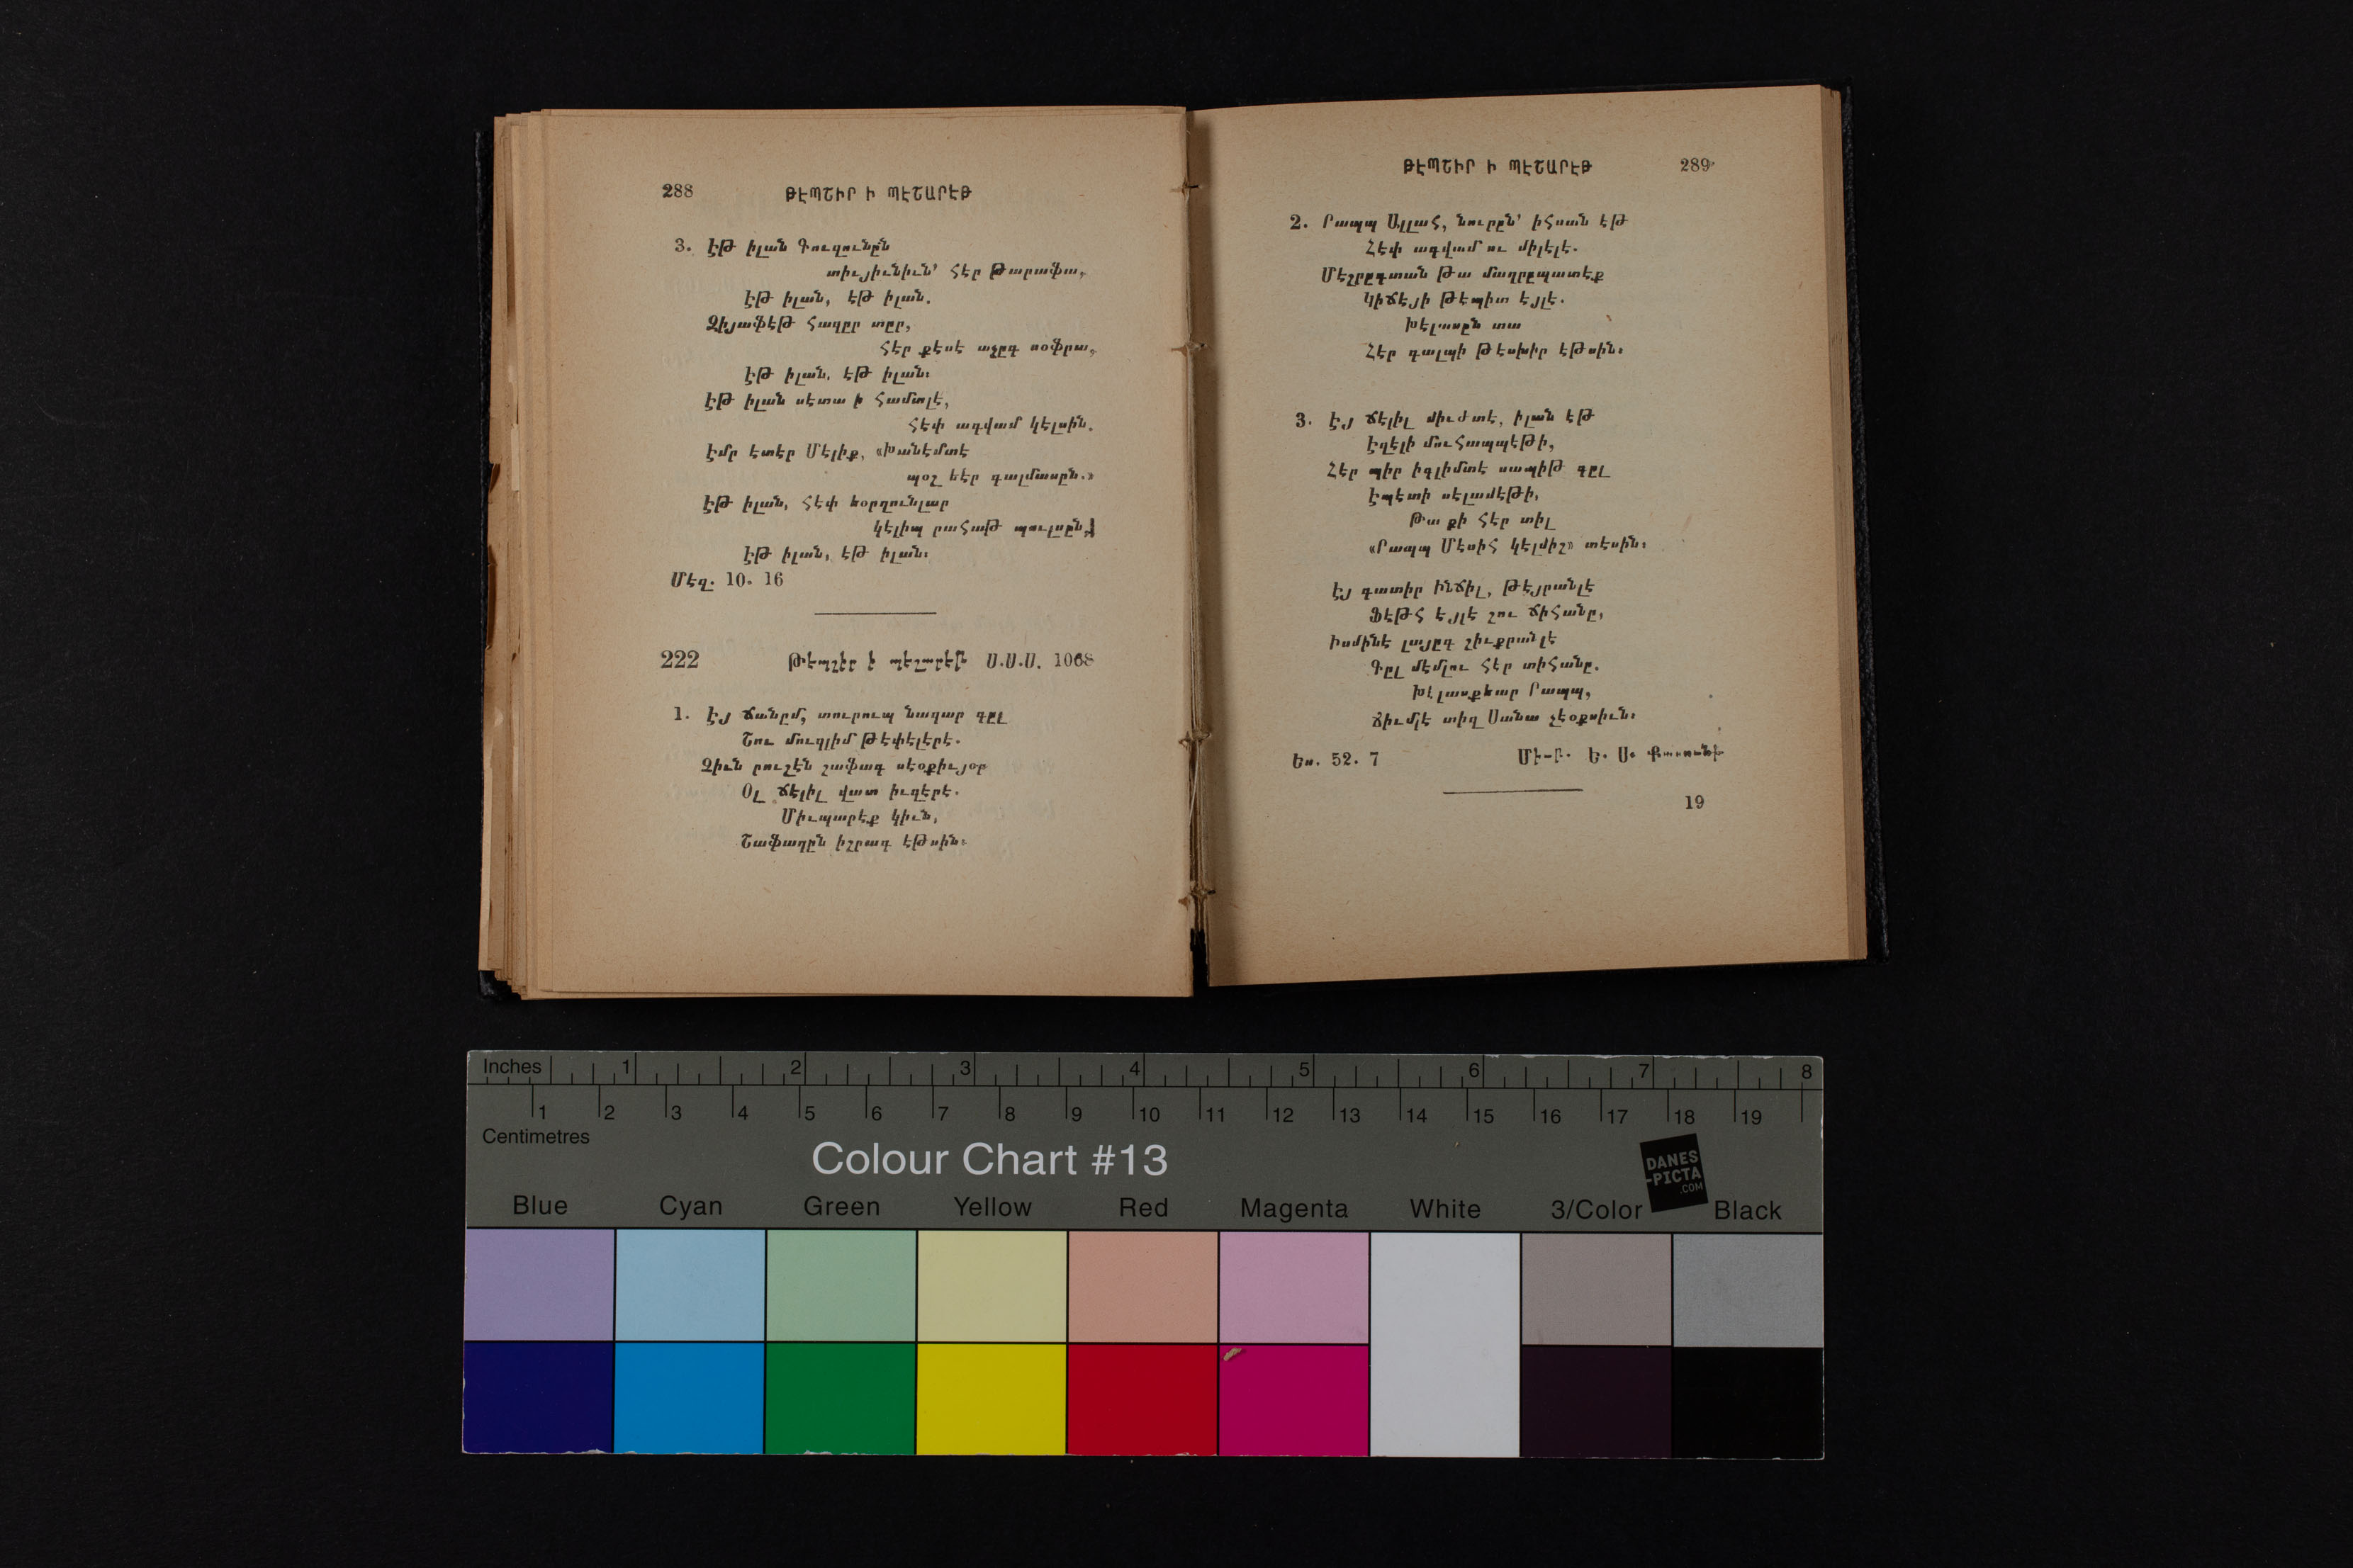 288 ԹԷՊՇԻՐ Ի ՊԷՇԱՐԷԹ
3. Էթ իլան Գուզունըն
տիւյիւնիւն՝ հէր թարաֆա,
Էթ իլան, էթ իլան.
Զիյաֆէթ հազըր տըր,
Հէր քէսէ աչըգ սօֆրա,
Էթ իլան, էթ իլան։
Էթ իլան սէտա ի համտլէ,
Հէփ ագվամ կէլսին.
Էմր էտէր Մէլիք, «Խանէմտէ
պօշ եէր գալմասըն.»
Էթ իլան, հէփ եօրղունլար
կէլիպ րահաթ պուլսըն,
Էթ իլան, էթ իլան։
Մէզ. 10. 16
222 Թէպշիր ի պէշարէթ Ս.Ս.Ս. 1068
1. Էյ ճանըմ, տուրուպ նազար գըլ
Շու մուզլիմ թէփէլէրէ.
Զիւն րուշէն շաֆագ սէօքիւյօր
Օլ ճէլիլ վատ իւզէրէ.
Միւպարէք կիւն,
Շաֆաղըն իշրագ էթսին։
ԹԷՊՇԻՐ Ի ՊԷՇԱՐԷԹ 289
2. Րապպ Ալլահ, նուրըն՝ իհսան էթ
Հէփ ագվամ ու միլէլէ.
Մէշրըգտան թա մաղրըպատէք
Կիճէյի թէպիտ էյլէ.
Խէլասըն տա
Հէր գալպի թէսխիր էթսին։
3. Էյ ճէլիլ միւժտէ, իլան էթ
Էզէլի մուհապպէթի,
Հէր պիր իգլիմտէ սապիթ գըլ
Էպէտի սէլամէթի,
Թա քի հէր տիլ
«Րապպ Մէսիհ կէլմիշ» տէսին։
Էյ գատիր Ինճիլ, թէյրանլէ
Ֆէթհ էյլէ շու ճիհանը,
Իսմինէ լայըգ շիւքրանլէ
Գըլ մէմլու հէր տիհանը.
Խէլասքեար Րապպ,
Ճիւմլէ տիզ Սանա չէօքսիւն։
Ես. 52. 7
19
Inches 1 2 3 4 5 6 7 8
1 2 3 4 5 6 7 8 9 10 11 12 13 14 15 16 17 18 19
Centimetres
Colour Chart #13
DANES
-PICTA
.COM
Blue Cyan Green Yellow Red Magenta White 3/Color Black